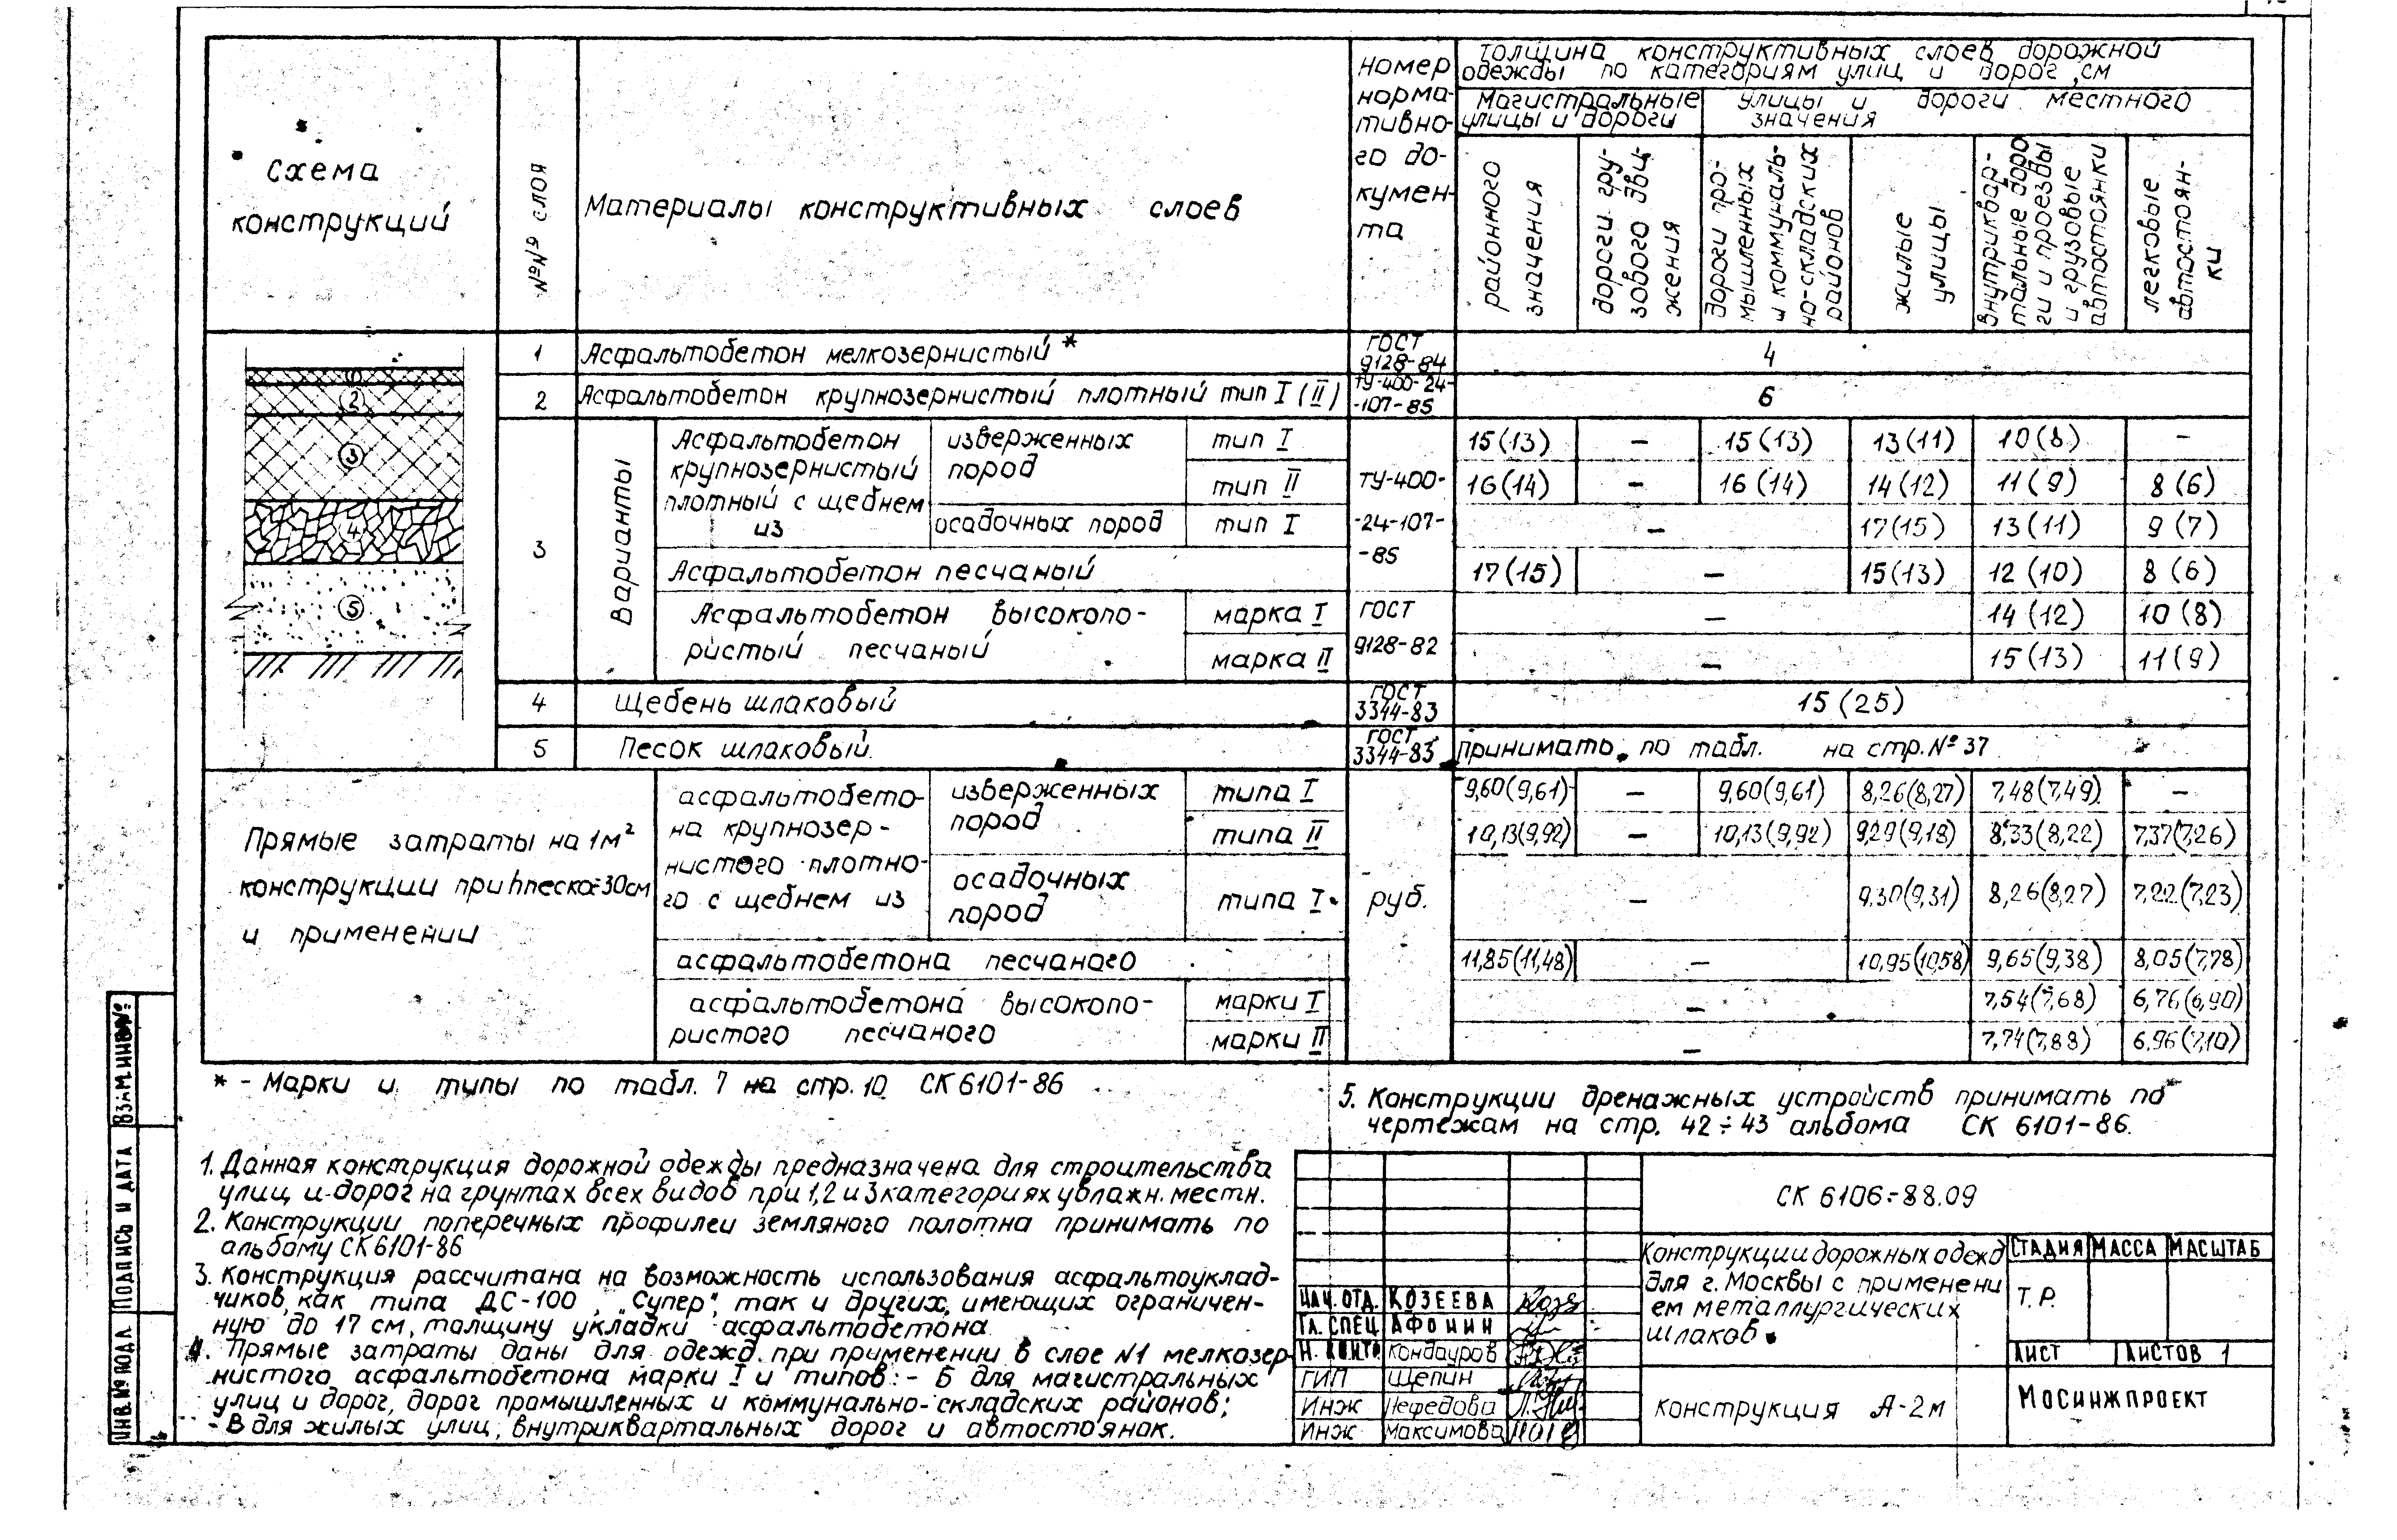 Схема
конструкций
№№ слоя
Материалы конструктивных слоев
Номер
норма-
тивно-
го до-
кумен-
та
Толщина конструктивных слоев дорожной
одежды по категориям улиц и дорог, см
Магистральные
улицы и дороги
Улицы и дороги местного
значения
районного
значения
дороги гру-
зового движ-
жения
дороги про-
мышленных
и коммуналь-
но-складских
районов
жилые
улицы
внутриквар-
тальные доро
ги и проезды
и грузовые
автостоянки
легковые
автостоян-
ки
1 Асфальтобетон мелкозернистый * ГОСТ 9128-84 4
2 Асфальтобетон крупнозернистый плотный тип I (II) ТУ-400-24-
-107-85 6
3 Варианты
Асфальтобетон
крупнозернистый
плотный с щебнем
из
изверженных
пород
тип I 15(13) – 15(13) 13(11) 10(8) –
тип II 16(14) – 16(14) 14(12) 11(9) 8(6)
осадочных пород тип I – 17(15) 13(11) 9(7)
ТУ-400-
-24-107-
-85
Асфальтобетон песчаный 17(15) – 15(13) 12(10) 8(6)
Асфальтобетон высокопо-
ристый песчаный
марка I – 14(12) 10(8)
марка II – 15(13) 11(9)
ГОСТ
9128-82
4 Щебень шлаковый ГОСТ 3344-83 15(25)
5 Песок шлаковый ГОСТ 3344-83 принимать по табл. на стр. № 37
① ② ③ ④ ⑤
Прямые затраты на 1м²
конструкции при hпеска=30см
и применении
асфальтобето-
на крупнозер-
нистого плотно-
го с щебнем из
изверженных
пород
типа I 9,60(9,61) – 9,60(9,61) 8,26(8,27) 7,48(7,49) –
типа II 10,13(9,92) – 10,13(9,92) 9,29(9,18) 8,33(8,22) 7,37(7,26)
осадочных
пород
типа I – 9,30(9,31) 8,26(8,27) 7,22(7,23)
руб.
асфальтобетона песчаного 11,85(11,48) – 10,95(10,58) 9,65(9,38) 8,05(7,78)
асфальтобетона высокопо-
ристого песчаного
марки I – 7,54(7,68) 6,76(6,90)
марки II – 7,74(7,88) 6,96(7,10)
* - Марки и типы по табл. 7 на стр. 10 СК 6101-86
1. Данная конструкция дорожной одежды предназначена для строительства
улиц и дорог на грунтах всех видов при 1,2 и 3 категориях увлажн. местн.
2. Конструкции поперечных профилей земляного полотна принимать по
альбому СК 6101-86
3. Конструкция рассчитана на возможность использования асфальтоуклад-
чиков, как типа ДС-100, "Супер", так и других, имеющих ограничен-
ную до 17 см, толщину укладки асфальтобетона
4. Прямые затраты даны для одежд при применении в слое N1 мелкозер-
нистого асфальтобетона марки I и типов: - Б для магистральных
улиц и дорог, дорог промышленных и коммунально-складских районов;
- В для жилых улиц, внутриквартальных дорог и автостоянок.
5. Конструкции дренажных устройств принимать по
чертежам на стр. 42÷43 альбома СК 6101-86.
СК 6106-88.09
Конструкции дорожных одежд
для г. Москвы с применени
ем металлургических
шлаков.
СТАДИЯ МАССА МАСШТАБ
Т.Р.
ЛИСТ ЛИСТОВ 1
конструкция А-2м
МОСИНЖПРОЕКТ
НАЧ. ОТД. КОЗЕЕВА
ГЛ. СПЕЦ АФОНИН
Н. КОНТР Кондауров
ГИП Щепин
Инж Нефедова
Инж Максимова
ВЗАМ. ИНВ №
ПОДПИСЬ И ДАТА
ИНВ. № ПОДЛ